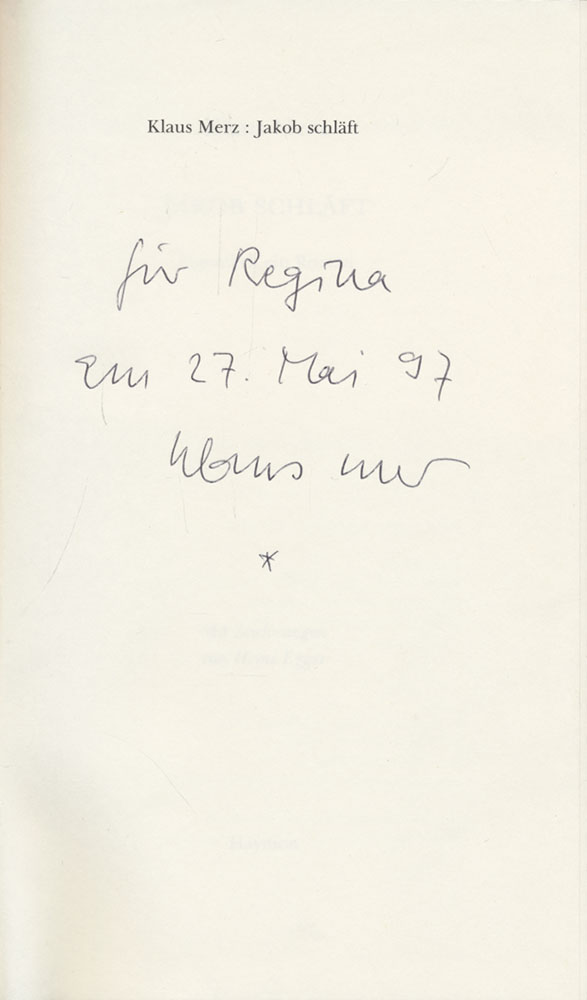 Klaus Merz : Jakob schläft
JAKOB SCHLÄFT
für Regina
am 27. Mai 97
Klaus Merz
*
Haymon